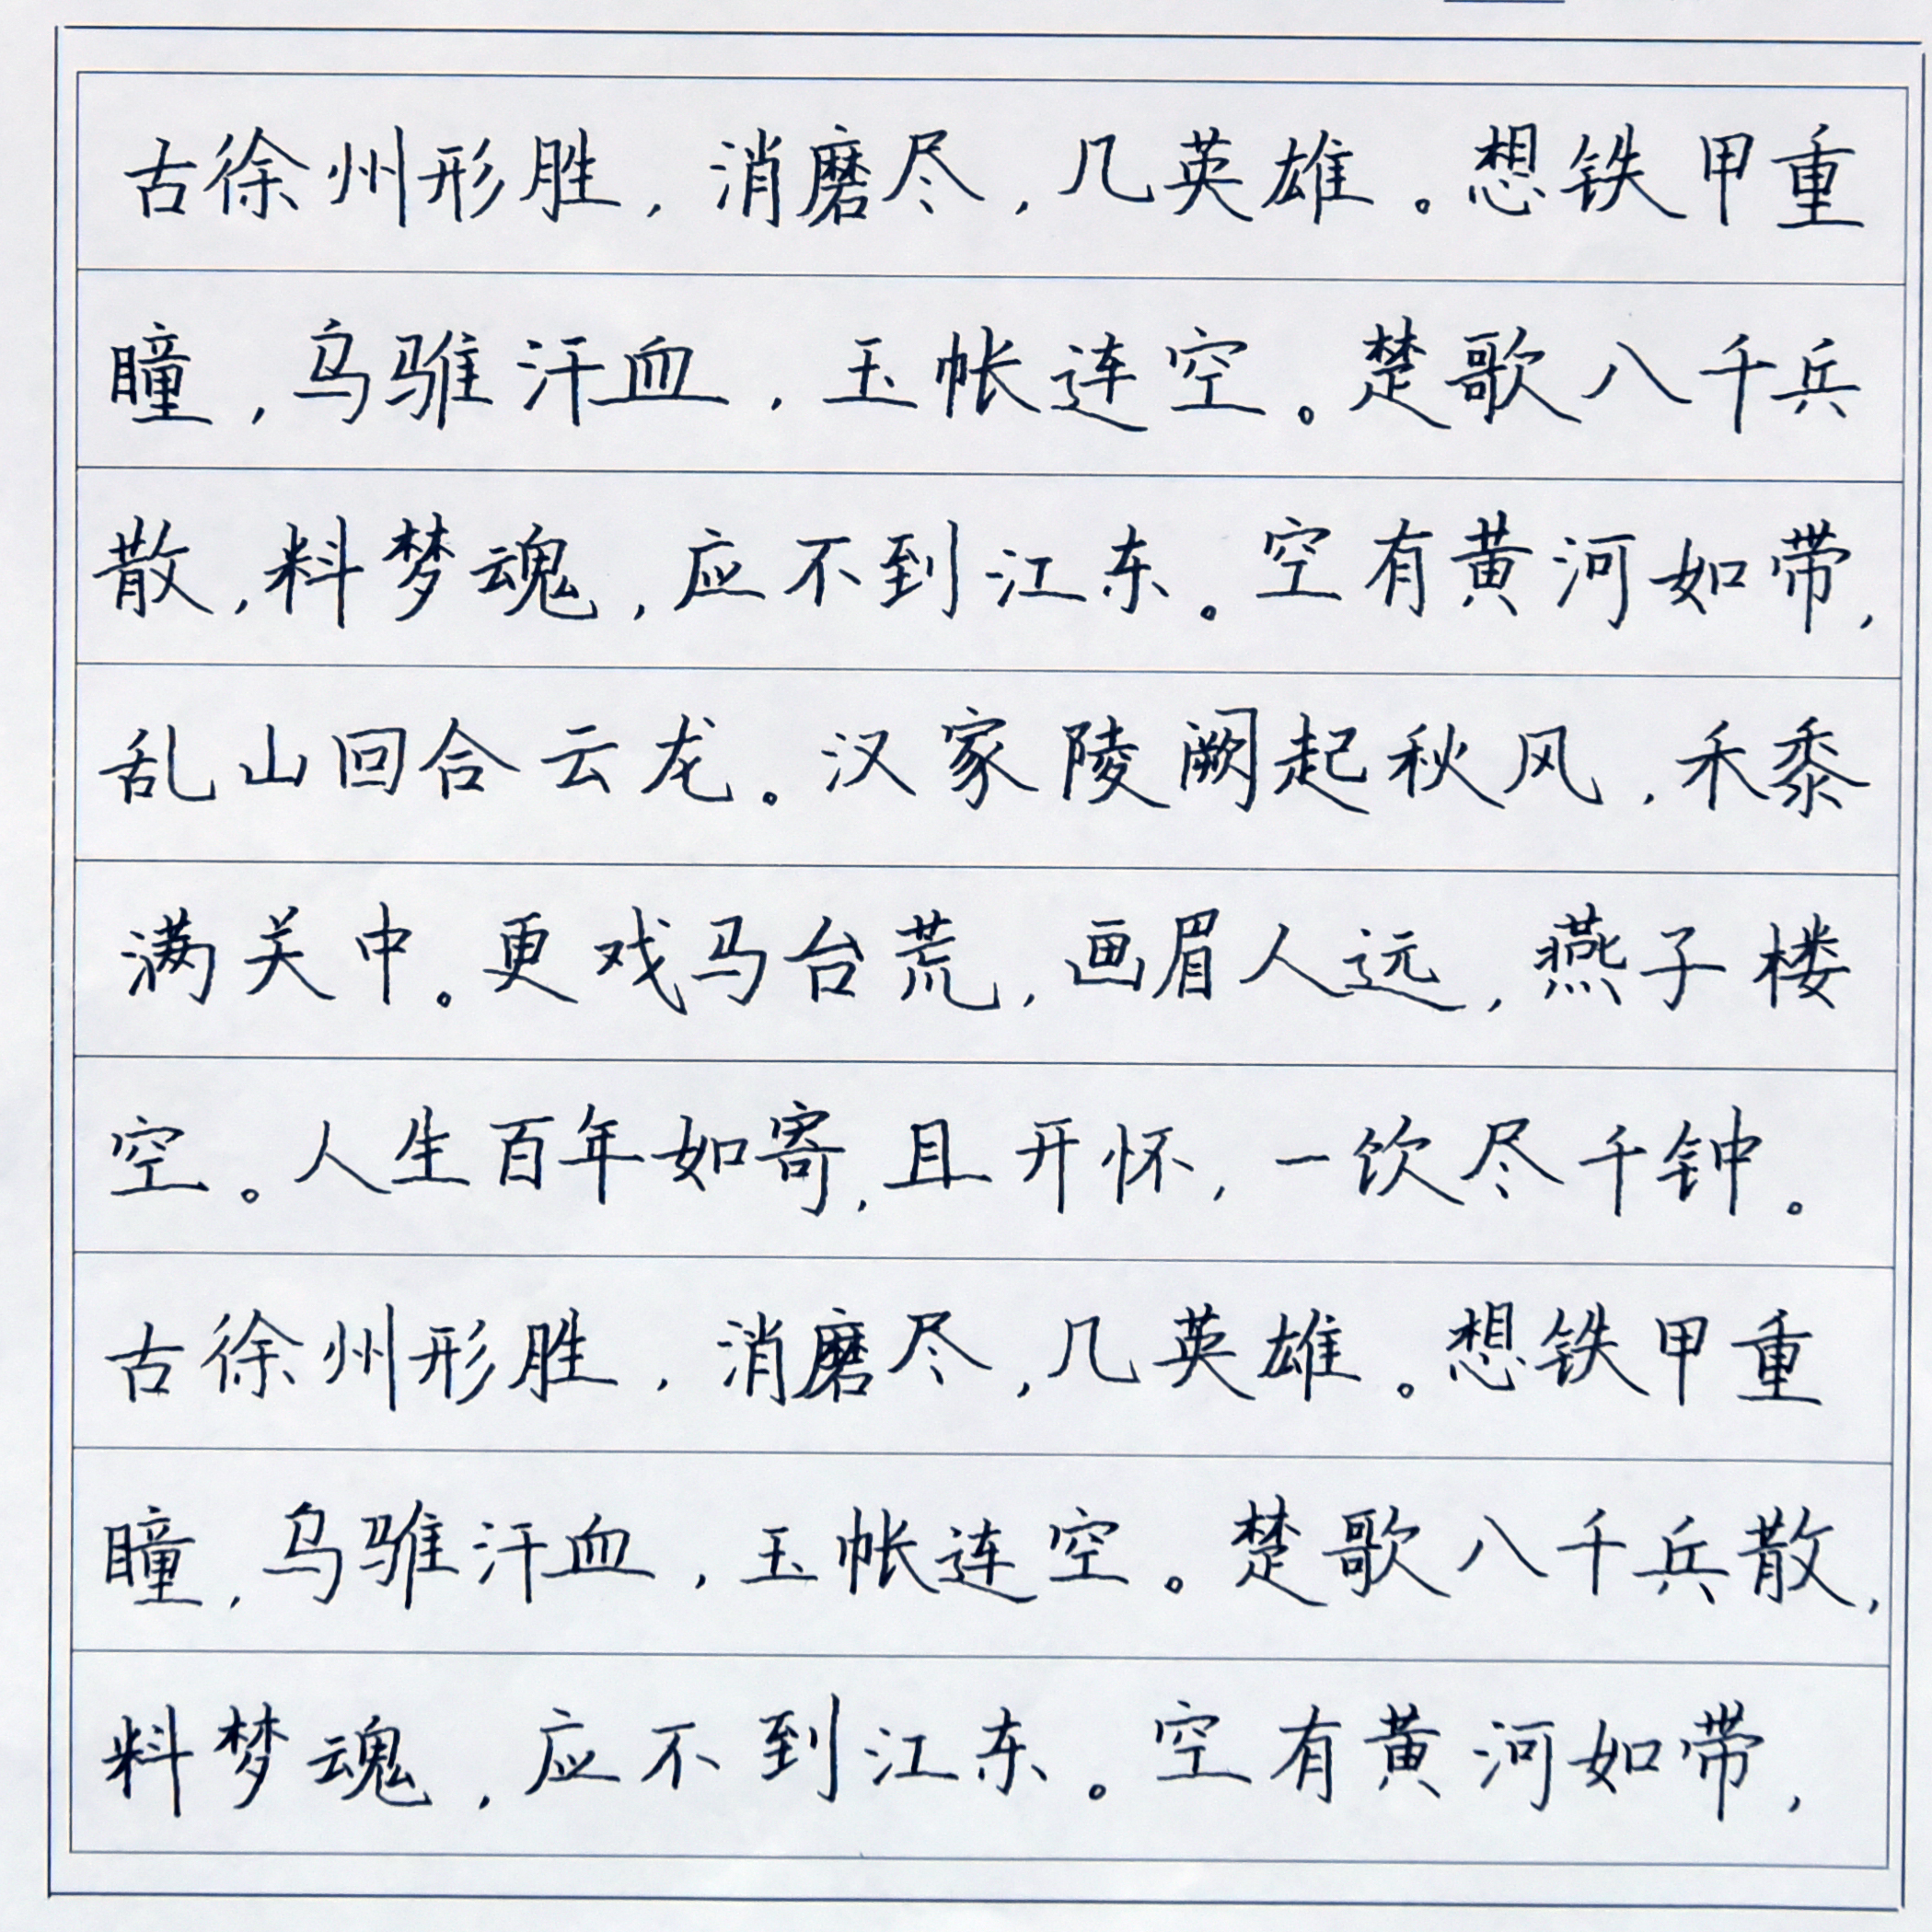 古徐州形胜，消磨尽，几英雄。想铁甲重
瞳，乌骓汗血，玉帐连空。楚歌八千兵
散，料梦魂，应不到江东。空有黄河如带，
乱山回合云龙。汉家陵阙起秋风，禾黍
满关中。更戏马台荒，画眉人远，燕子楼
空。人生百年如寄，且开怀，一饮尽千钟。
古徐州形胜，消磨尽，几英雄。想铁甲重
瞳，乌骓汗血，玉帐连空。楚歌八千兵散，
料梦魂，应不到江东。空有黄河如带，